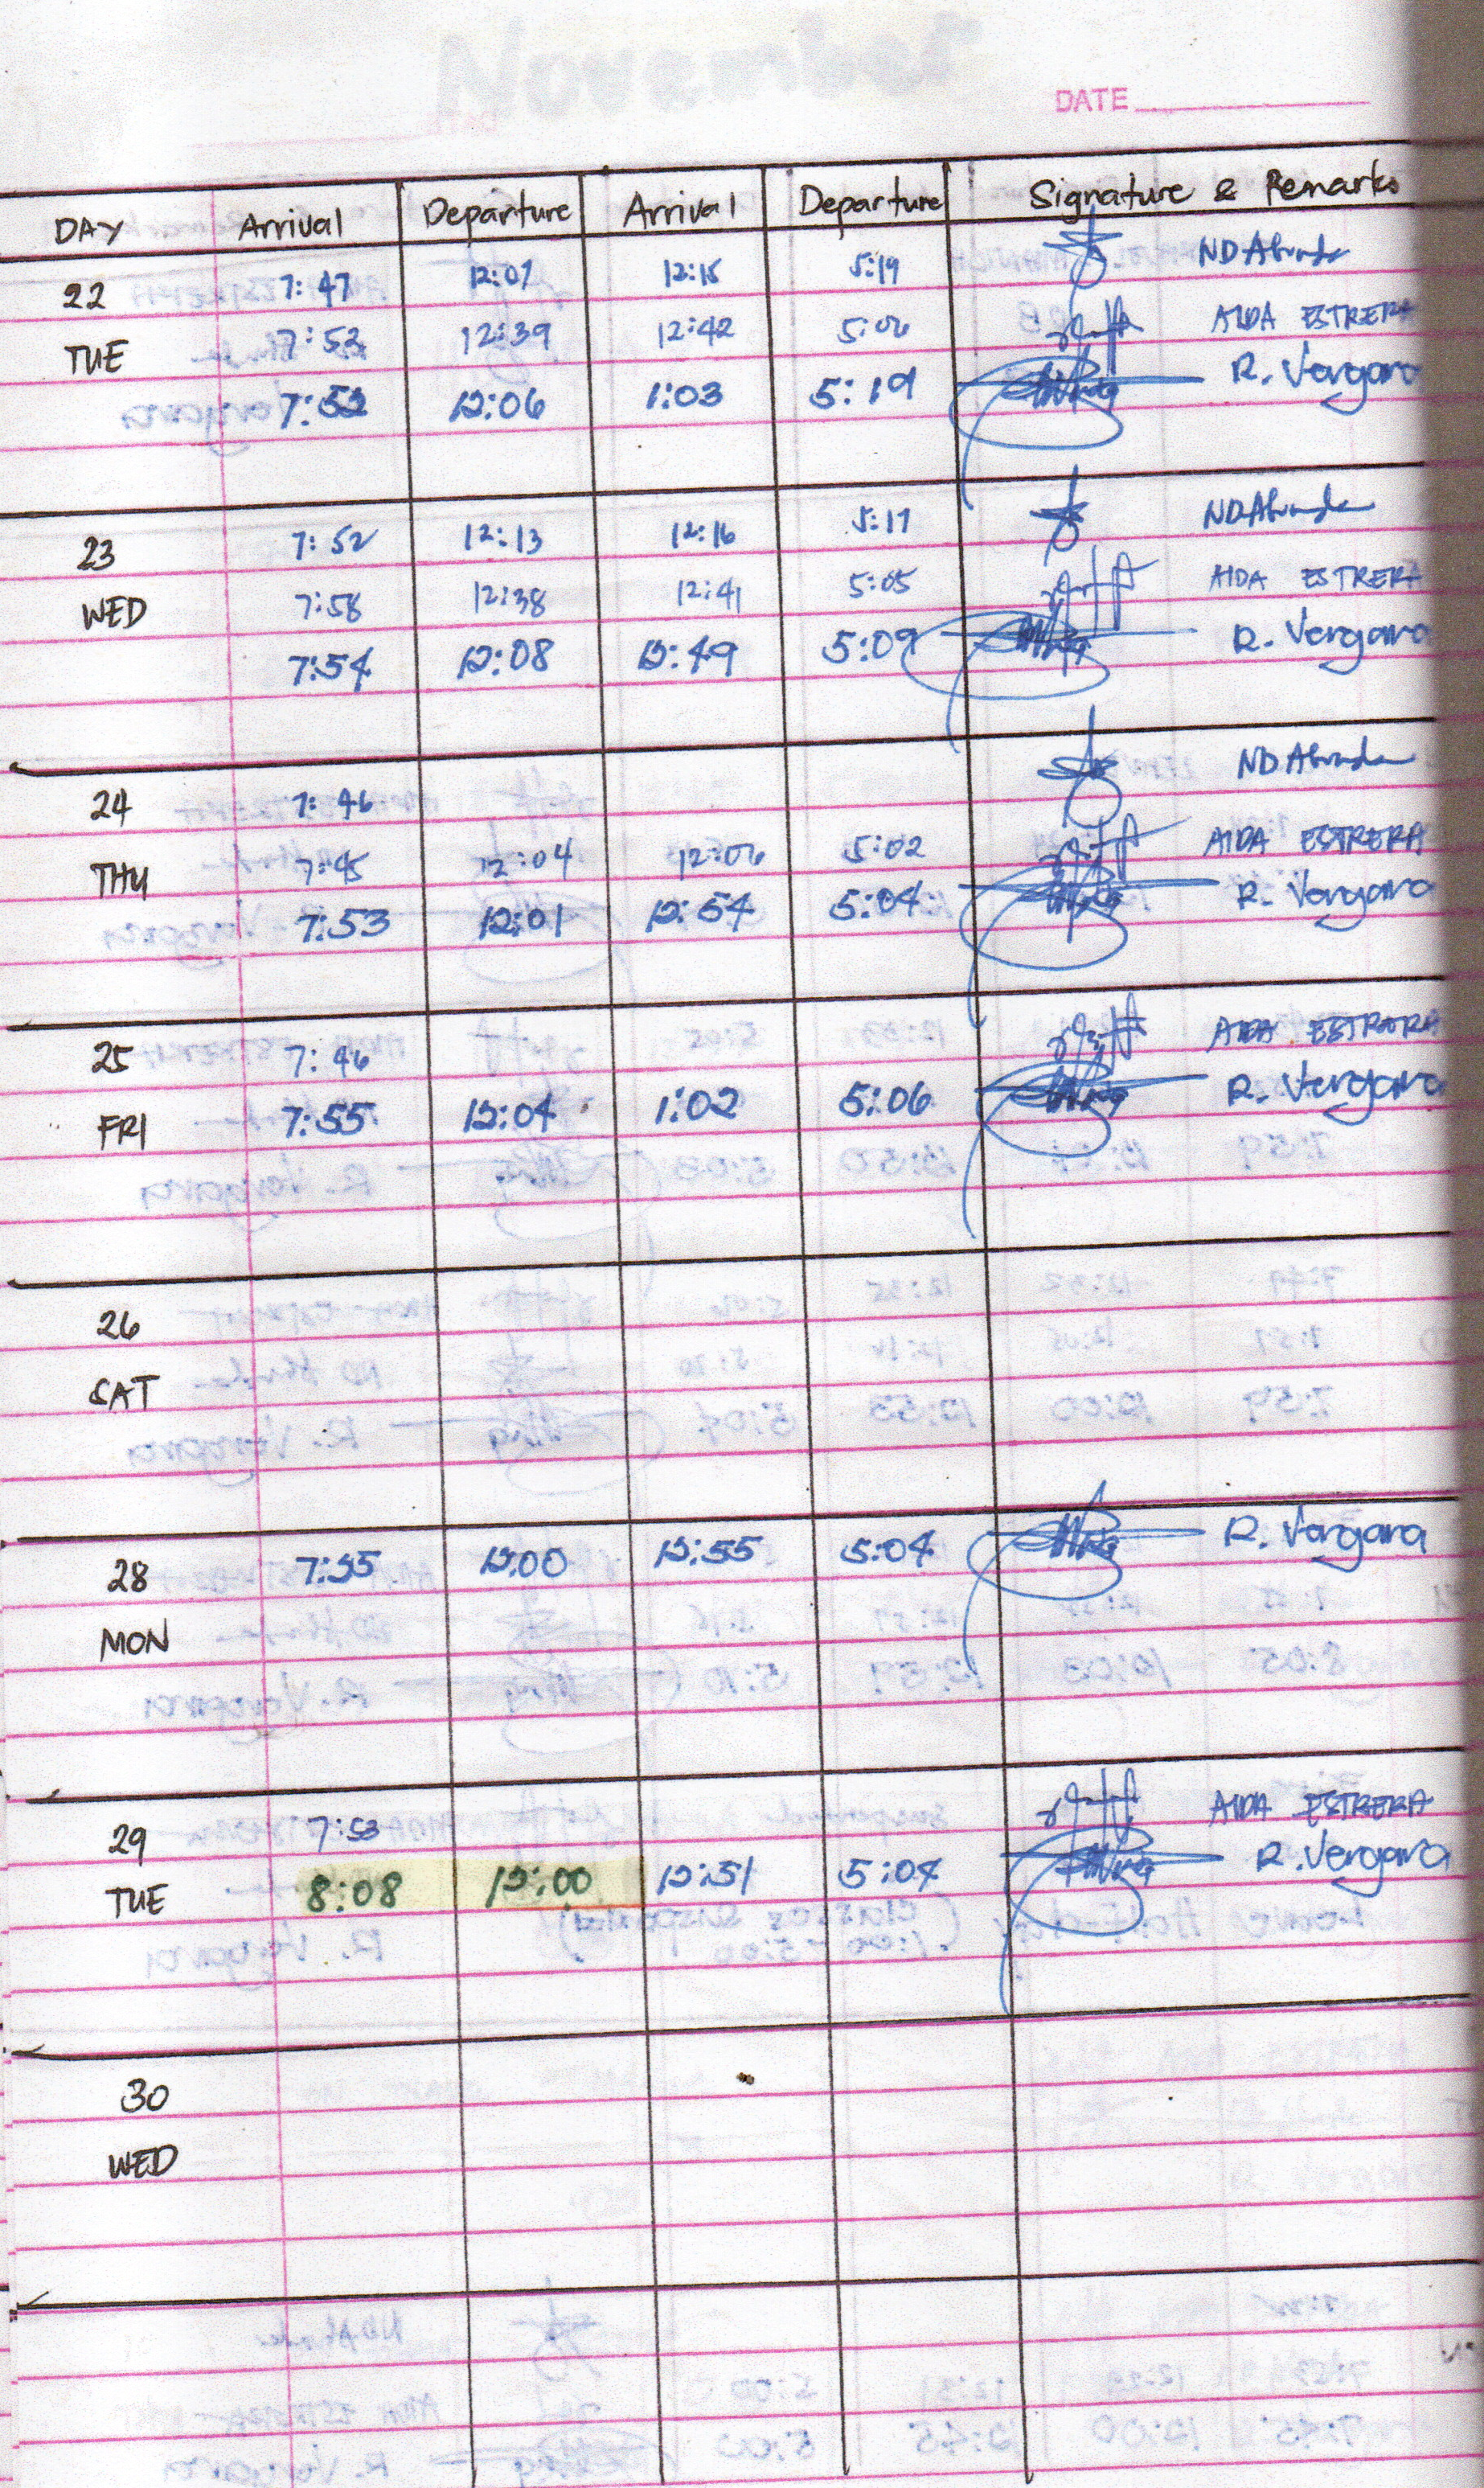 DATE
DAY Arrival Departure Arrival Departure Signature & Remarks
22 7:47 12:07 12:15 5:19 NDAbunda
TUE 7:53 12:39 12:42 5:06 AIDA ESTRERA
7:52 12:06 1:03 5:19 R. Vergara
23 7:52 12:13 12:16 5:17 NDAbunda
WED 7:58 12:38 12:41 5:05 AIDA ESTRERA
7:54 12:08 12:49 5:09 R. Vergara
24 7:46 NDAbunda
THU 7:45 12:04 12:06 5:02 AIDA ESTRERA
7:53 12:01 12:54 5:04 R. Vergara
25 7:46 AIDA ESTRERA
FRI 7:55 12:04 1:02 5:06 R. Vergara
26
SAT
28 7:55 12:00 12:55 5:04 R. Vergara
MON
29 7:53 AIDA ESTRERA
TUE 8:08 12:00 12:51 5:04 R. Vergara
30
WED